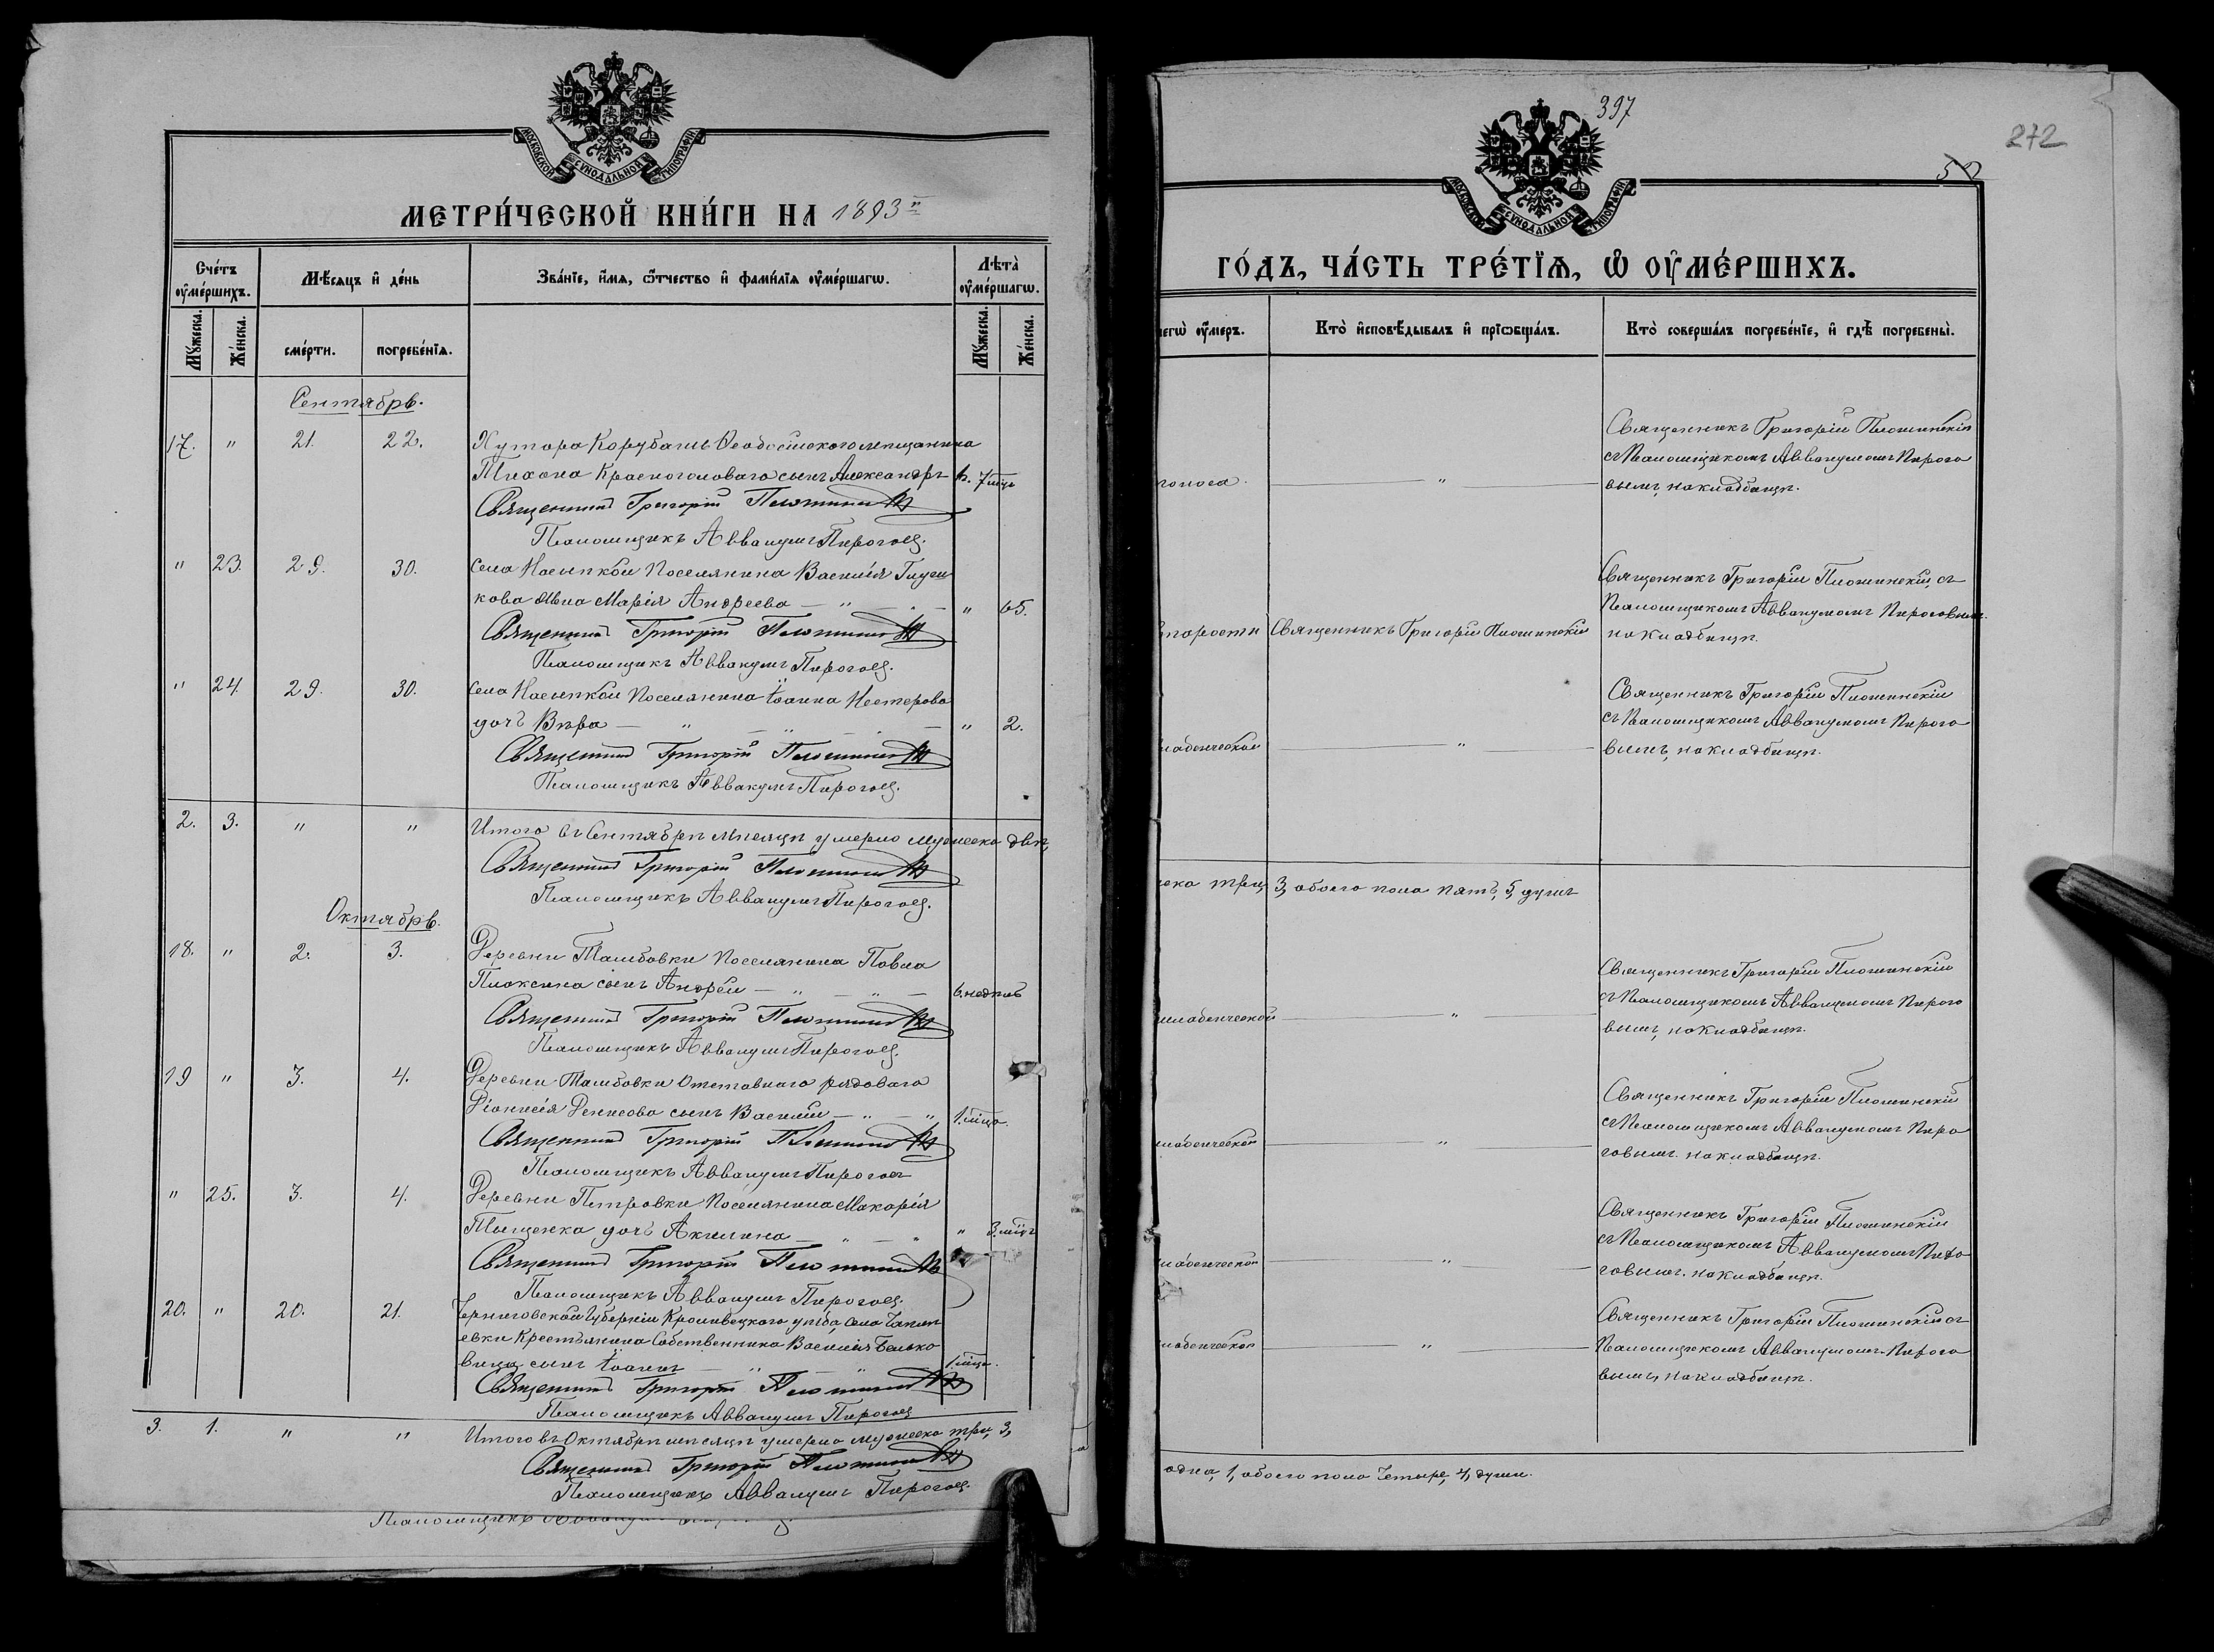 МОСКОВСКОЙ СѴНОДАЛЬНОЙ ТИПОГРАФІИ
МЕТРИ́ЧЕСКОЙ КНИ́ГИ НА 1893й
Сче́тъ оу҆ме́ршихъ.
Мѣ́сяцъ и҆ де́нь
Зва́нїе, и҆́мѧ, ѻ҆́тчество и҆ фами́лїѧ оу҆ме́ршагѡ.
Лѣта̀ оу҆ме́ршагѡ.
Му́жеска.
Же́нска.
сме́рти.
погребе́нїѧ.
Му́жеска.
Же́нска.
Сентябрь.
17. " 21. 22. Хутора Корубашъ Ѳеодосійскаго мещанина
Тихона Красноголоваго сынъ Александръ 6. 7 мцъ
Священникъ Григорій Плошинскій
Псаломщикъ Аввакумъ Пироговъ.
" 23. 29. 30. Села Насыпкой Поселянина Василія Глущ
кова жена Марія Андреева — " — " — " 65.
Священникъ Григорій Плошинскій
Псаломщикъ Аввакумъ Пироговъ.
" 24. 29. 30. Села Насыпкой Поселянина Іоанна Нестерова
дочь Вѣра — " — " — " 2.
Священникъ Григорій Плошинскій
Псаломщикъ Аввакумъ Пироговъ.
2. 3. " " Итого въ Сентябрѣ мѣсяцѣ умерло мужеска двѣ,
Священникъ Григорій Плошинскій
Псаломщикъ Аввакумъ Пироговъ.
Октябрь.
18. " 2. 3. Деревни Тамбовки Поселянина Павла
Плаксина сынъ Андрей — " — " — 6. недѣль
Священникъ Григорій Плошинскій
Псаломщикъ Аввакумъ Пироговъ.
19 " 3. 4. Деревни Тамбовки Отставнаго рядоваго
Діонисія Денисова сынъ Василій — " — " 1. мцъ.
Священникъ Григорій Плошинскій
Псаломщикъ Аввакумъ Пироговъ
" 25. 3. 4. Деревни Петровки Поселянина Макарія
Тищенка дочь Акилина — " — " " 3. мцъ
Священникъ Григорій Плошинскій
Псаломщикъ Аввакумъ Пироговъ.
20. " 20. 21. Черниговской Губерніи Кролевецкаго уѣзда, села Чапли
евки Крестьянина Собственника Василія Белько
вица сынъ Іоаннъ — " — " 1. мцъ.
Священникъ Григорій Плошинскій
Псаломщикъ Аввакумъ Пироговъ
3. 1. " " Итого въ Октябрѣ мѣсяцѣ умерло мужеска три, 3,
Священникъ Григорій Плошинскій
Псаломщикъ Аввакумъ Пироговъ.
Псаломщикъ
397
272
52
МОСКОВСКОЙ СѴНОДАЛЬНОЙ ТИПОГРАФІИ
ГО́ДЪ, ЧА́СТЬ ТРЕ́ТЇѦ, Ѡ҆ ОУ҆МЕ́РШИХЪ.
чегѡ̀ оу҆́меръ.
Кто̀ и҆сповѣ́дывалъ и҆ прїѡбща́лъ.
Кто̀ соверша́лъ погребе́нїе, и҆ гдѣ̀ погребены̀.
поноса. — " — Священникъ Григорій Плошинскій
съ Псаломщикомъ Аввакумомъ Пирого
вымъ, на кладбищѣ.
старости Священникъ Григорій Плошинскій Священникъ Григорій Плошинскій, съ
Псаломщикомъ Аввакумомъ Пироговымъ
на кладбищѣ.
младенческой — " — Священникъ Григорій Плошинскій
съ Псаломщикомъ Аввакумомъ Пирого
вымъ, на кладбищѣ.
ска три, 3, обоего пола пять, 5, душъ
младенческой — " — Священникъ Григорій Плошинскій
съ Псаломщикомъ Аввакумомъ Пирого
вымъ, на кладбищѣ.
младенческой — " — Священникъ Григорій Плошинскій
съ Псаломщикомъ Аввакумомъ Пиро
говымъ. на кладбищѣ.
младенческой — " — Священникъ Григорій Плошинскій
съ Псаломщикомъ Аввакумомъ Пиро
говымъ. на кладбищѣ.
младенческой — " — Священникъ Григорій Плошинскій съ
Псаломщикомъ Аввакумомъ Пирого
вымъ, на кладбищѣ.
одна, 1, обоего пола четыре, 4, души.